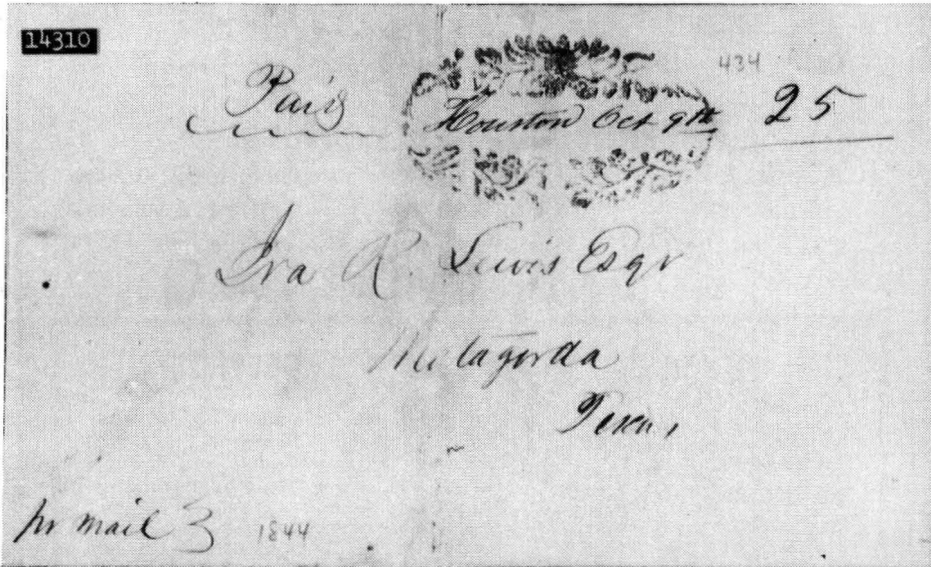 14310
434
Paid Houston Oct 9th 25
Ira R. Lewis Esqr
Matagorda
Texas
pr mail 1844